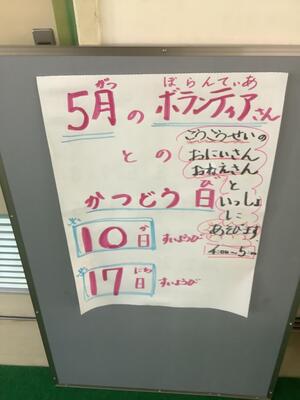 5月の ボランティアさん
がつ ぼらんてぃあ
との
かつどう日
び
10日 すいようび
か
17日 すいようび
にち
こうこうせいの
おにいさん
おねえさん
と
いっしょ
に
あそびます
4:00〜5:00